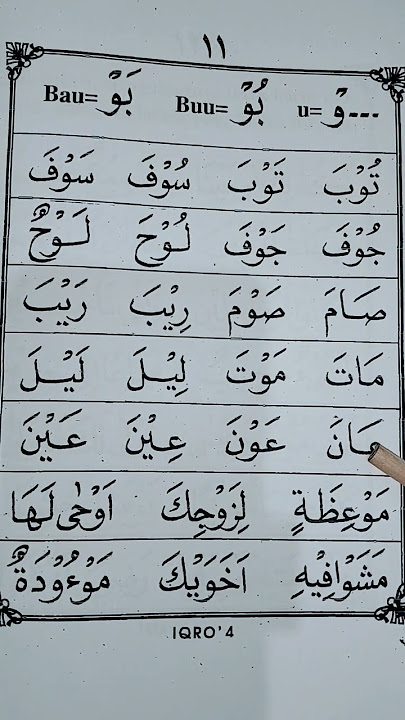 ١١
---وْ =u بُوْ =Buu بَوْ =Bau
تُوْبَ تَوْبَ سُوْفَ سَوْفَ
جُوْفَ جَوْفَ لُوْحَ لَوْحٌ
صَامَ صَوْمَ رِيْبَ رَيْبَ
مَاتَ مَوْتَ لِيْلَ لَيْلَ
عَوْنَ عِيْنَ عَيْنَ
مَوْعِظَةٍ لِزَوْجِكَ اَوْحٰى لَهَا
مَشَوْافِيْهِ اَخَوَيْكَ مَوْءُوْدَةٌ
IQRO'4